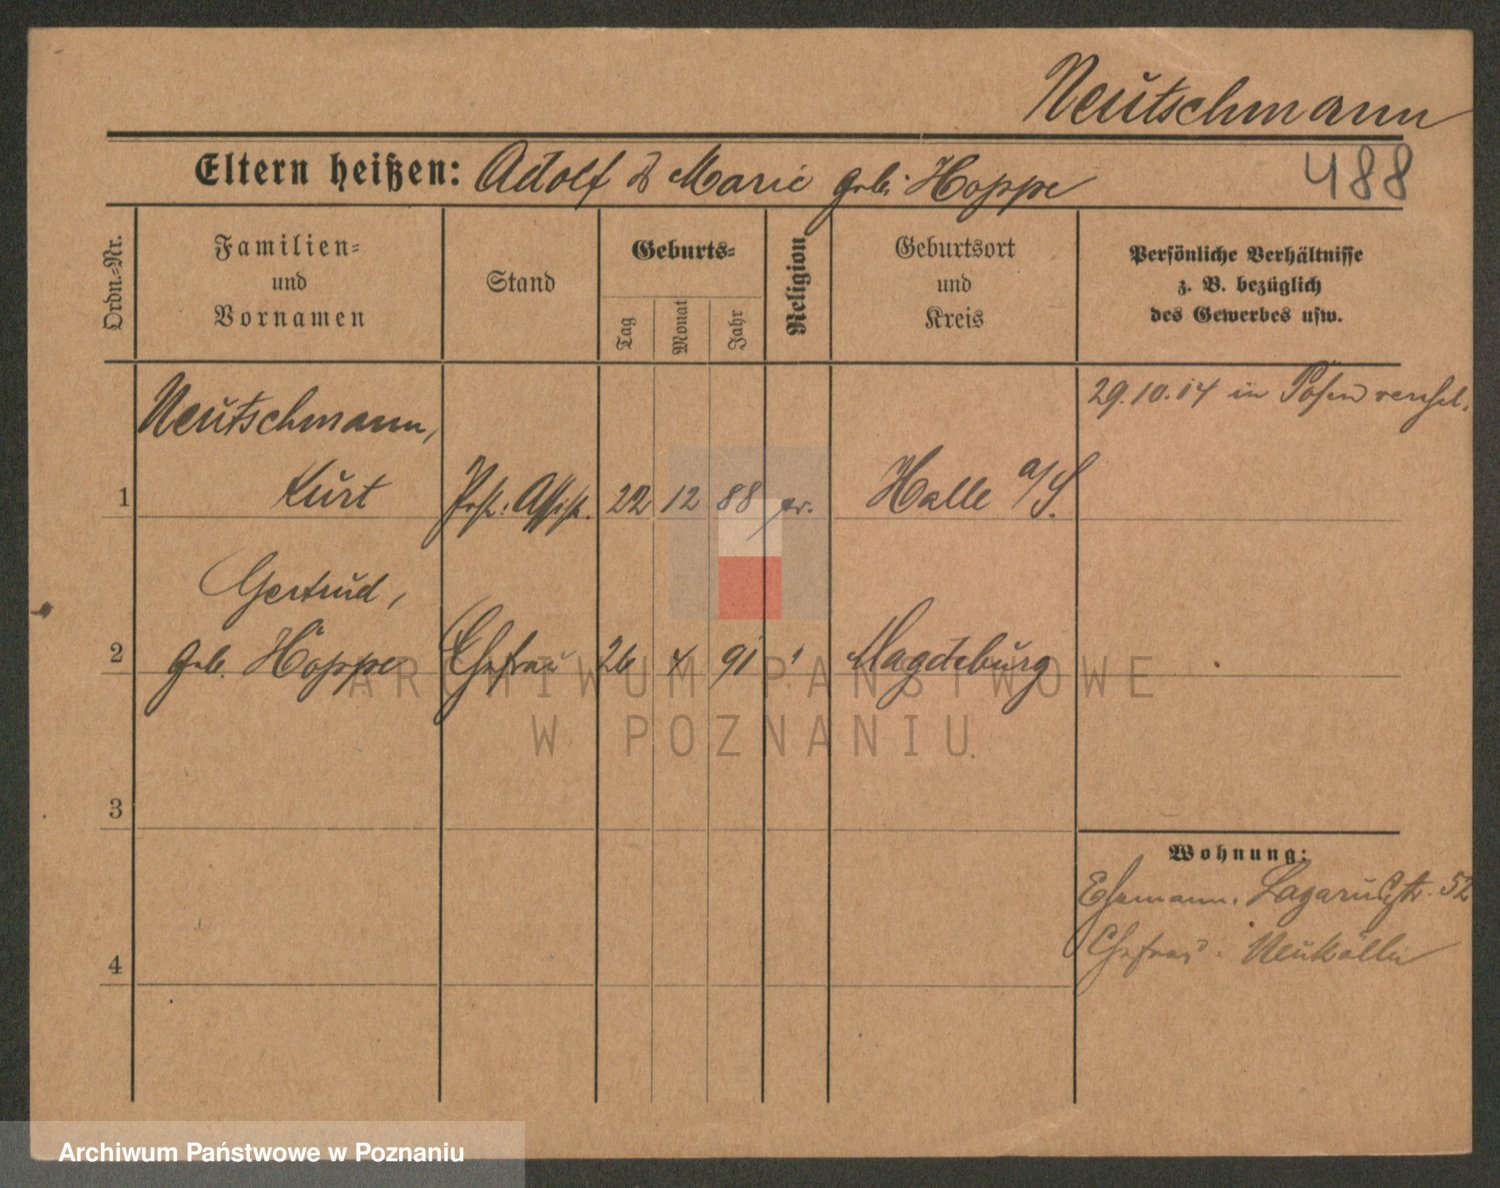 Neutschmann
Eltern heißen: Adolf & Marie geb. Hoppe 488
Ordn.=Nr.
Familien=
und
Vornamen
Stand
Geburts=
Tag
Monat
Jahr
Religion
Geburtsort
und
Kreis
Persönliche Verhältnisse
z. B. bezüglich
des Gewerbes usw.
29.10.14 in Posen verehel.
Neutschmann,
1 Kurt Post. Assist. 22 12 88 ev. Halle a/S.
Gertrud,
2 geb. Hoppe Ehefrau 26 4 91 " Magdeburg
ARCHIWUM PAŃSTWOWE
W POZNANIU
3
Wohnung:
Ehemann. Lazarusstr. 52
Ehefrau. Neukölln
4
Archiwum Państwowe w Poznaniu